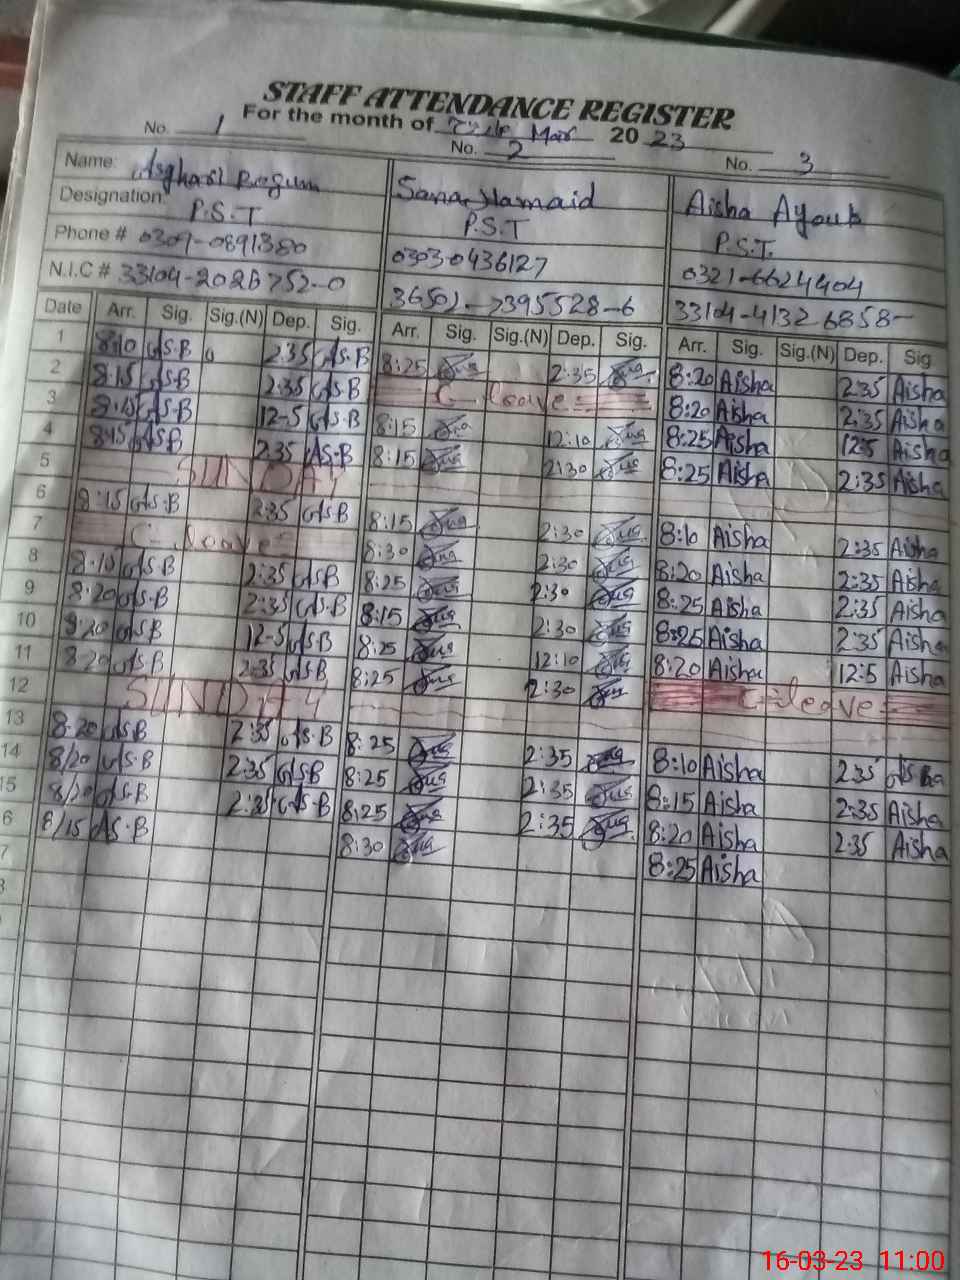 STAFF ATTENDANCE REGISTER
For the month of Mar 2023
No. 1 No. 2 No. 3
Name: Asghari Begum Sana Hamaid Aisha Ayoub
Designation: P.S.T P.S.T P.S.T.
Phone # 0309-0891380 0303-0436127 0321-6624404
N.I.C # 33104-2026752-0 36502-7395528-6 33104-41326858-
Date Arr. Sig. Sig.(N) Dep. Sig. Arr. Sig. Sig.(N) Dep. Sig. Arr. Sig. Sig.(N) Dep. Sig
1 8:10 AS.B 2:35 AS.B 8:25 2:35 8:20 Aisha 2:35 Aisha
2 8:15 AS.B 2:35 AS.B C-leave 8:20 Aisha 2:35 Aisha
3 8:15 AS.B 12-5 AS.B 8:15 12:10 8:25 Aisha 12:5 Aisha
4 8:15 ASB 2.35 AS.B 8:15 2:30 8:25 Aisha 2:35 Aisha
5 SUNDAY
6 8:15 AS.B 2:35 AS.B 8:15 2:30 8:10 Aisha 2:35 Aisha
7 C-leave 8:30 2:30 8:20 Aisha 2:35 Aisha
8 8:10 AS.B 2:35 AS.B 8:25 2:30 8:25 Aisha 2:35 Aisha
9 8:20 AS.B 2:35 AS.B 8:15 2:30 8:25 Aisha 2:35 Aisha
10 8:20 AS.B 12-5 AS.B 8:25 12:10 8:20 Aisha 12:5 Aisha
11 8:20 AS.B 2:35 AS.B 8:25 2:30 C-leave
12 SUNDAY
13 8:20 AS.B 2:35 AS.B 8:25 2:35 8:10 Aisha 2:35
14 8/20 AS.B 2:35 AS.B 8:25 2:35 8:15 Aisha 2:35 Aisha
15 8/20 AS.B 2:35 AS.B 8:25 2:35 8:20 Aisha 2:35 Aisha
6 8/15 AS.B 8:30 8:25 Aisha
7
8
16-03-23 11:00